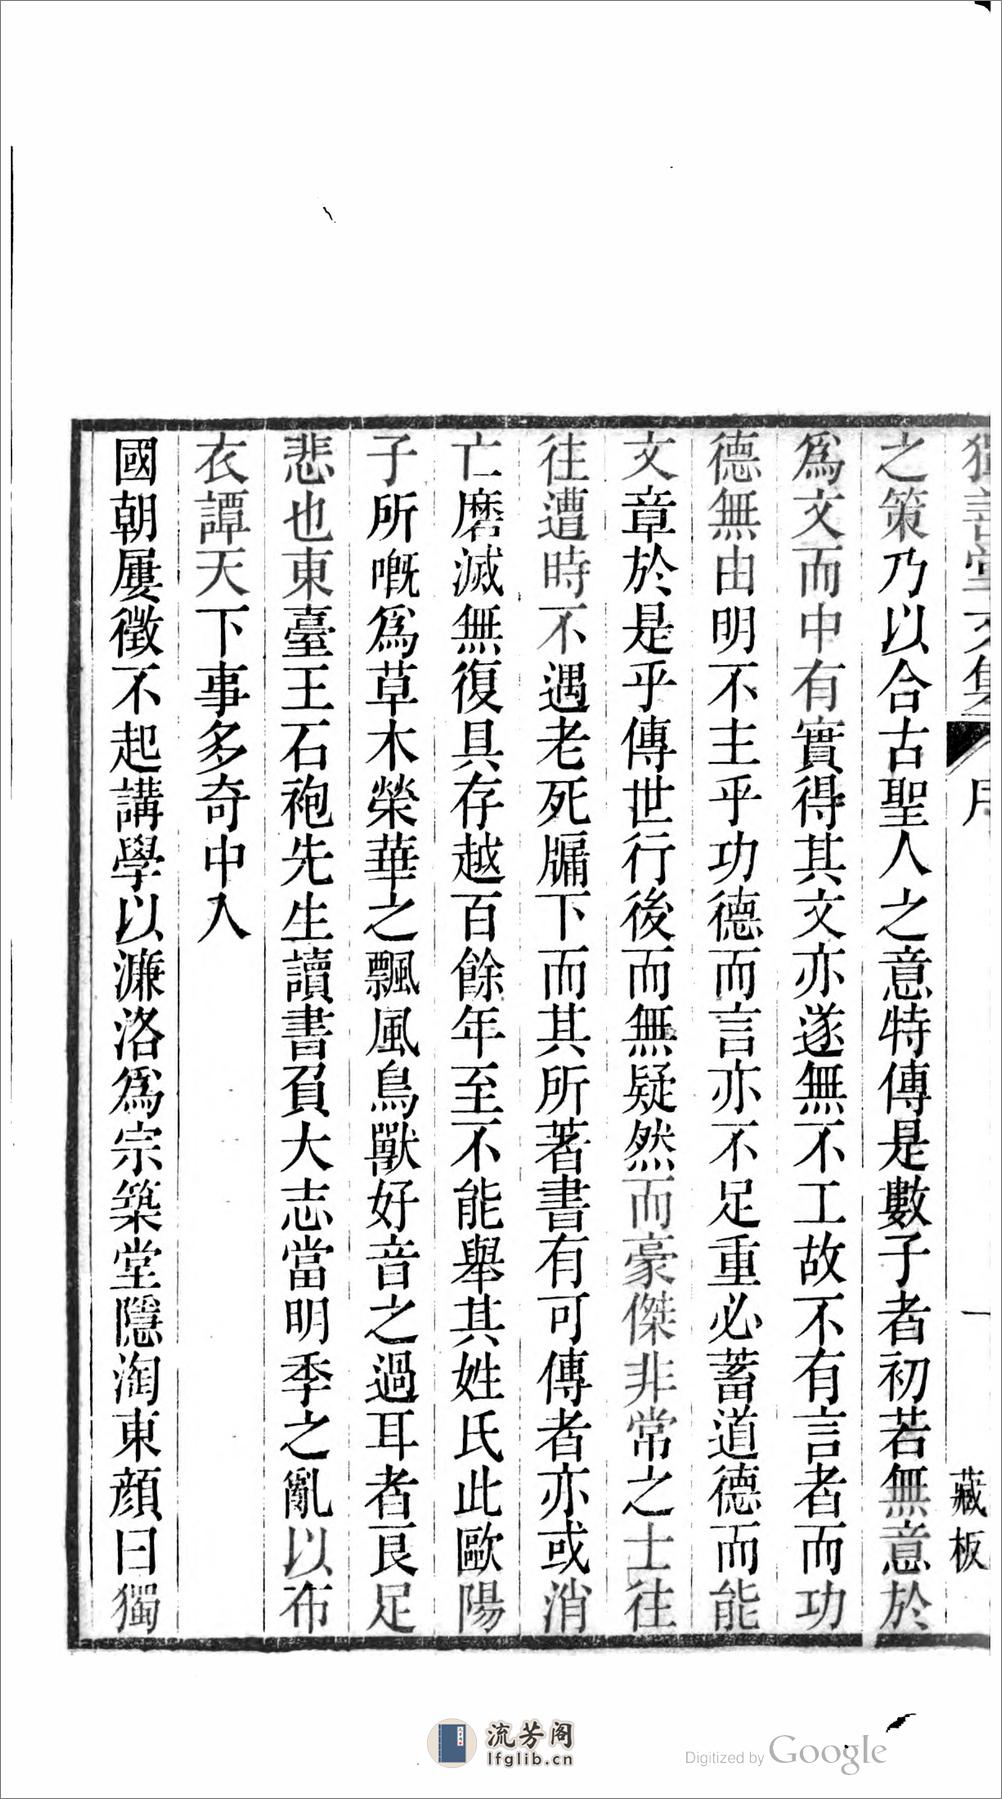 獨善堂文集 序 一 藏板
之策乃以合古聖人之意特傳是數子者初若無意於
爲文而中有實得其文亦遂無不工故不有言者而功
德無由明不主乎功德而言亦不足重必蓄道德而能
文章於是乎傳世行後而無疑然而豪傑非常之士往
往遭時不遇老死牖下而其所著書有可傳者亦或消
亡磨滅無復具存越百餘年至不能舉其姓氏此歐陽
子所嘅爲草木榮華之飄風鳥獸好音之過耳者良足
悲也東臺王石袍先生讀書負大志當明季之亂以布
衣譚天下事多奇中入
國朝屢徵不起講學以濂洛爲宗築堂隱淘東顔曰獨
流芳阁
lfglib.cn
Digitized by Google